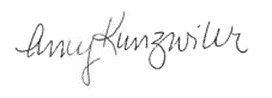 Amy Kunzwiler